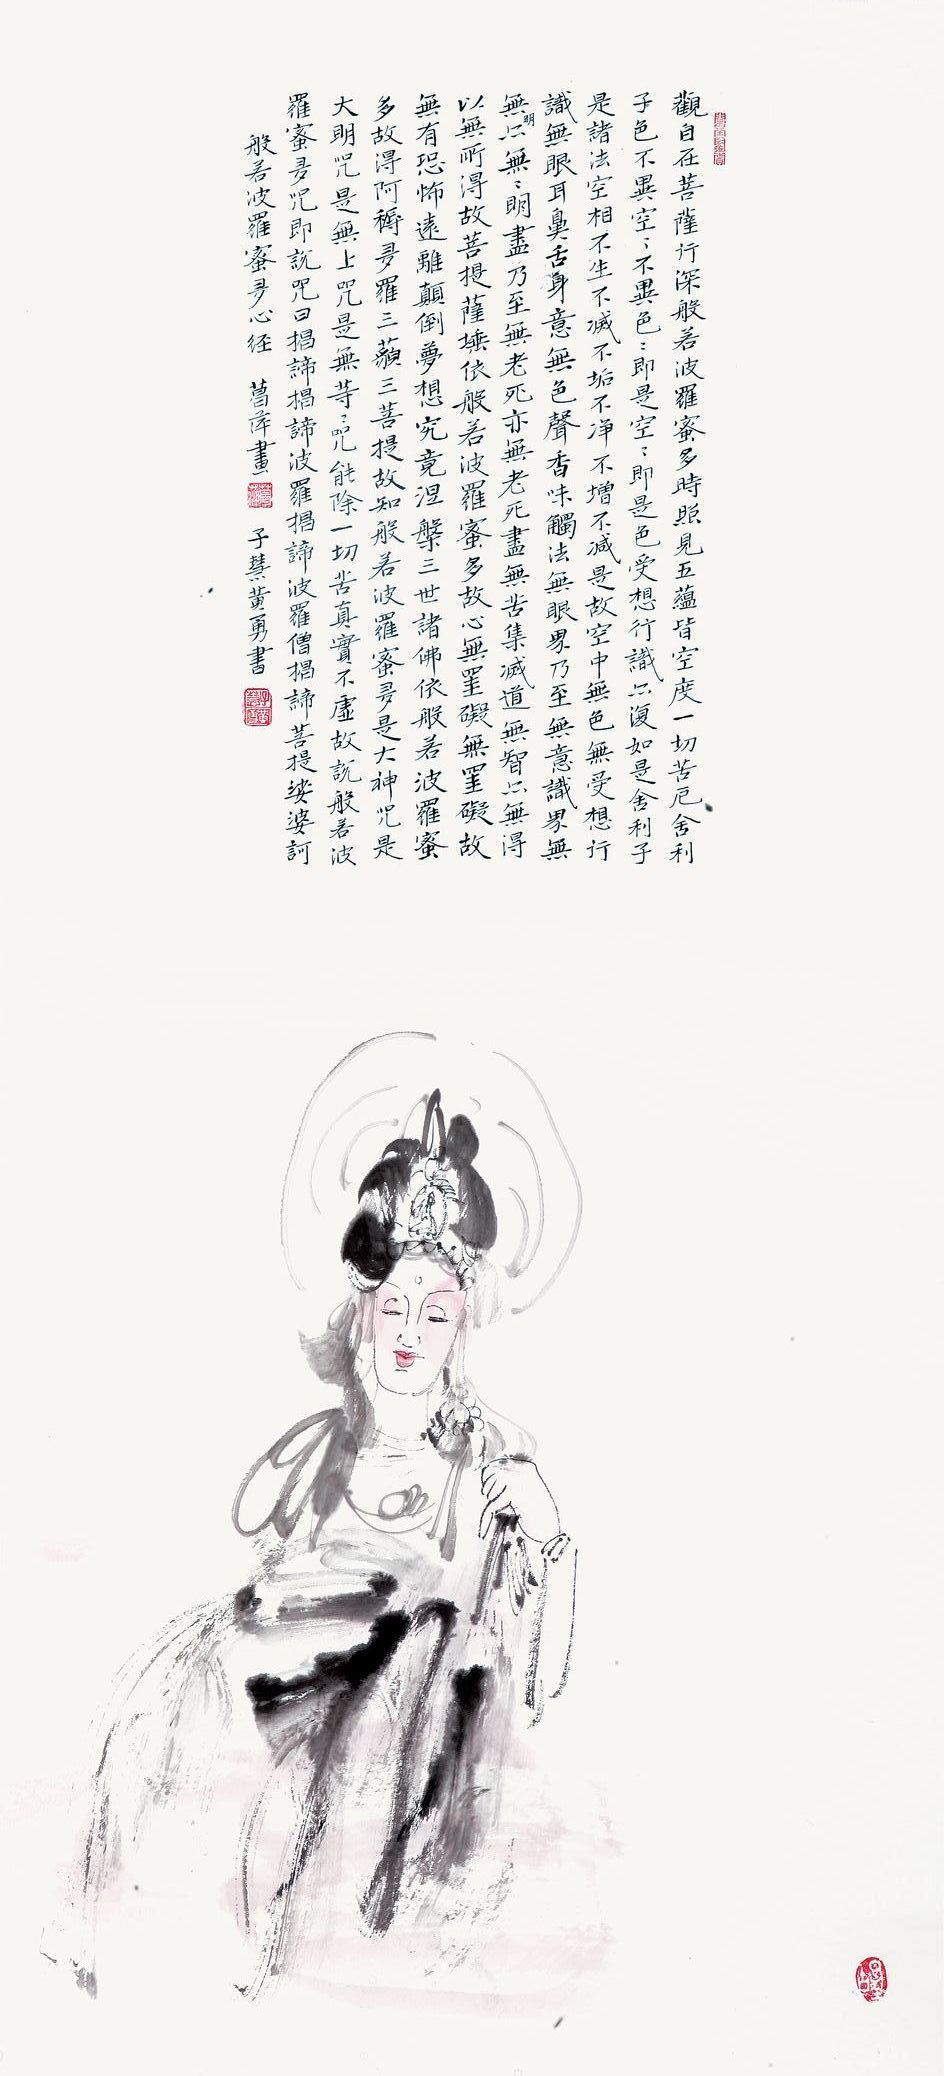 觀自在菩薩行深般若波羅蜜多時照見五蘊皆空度一切苦厄舍利
子色不異空〻不異色〻即是空〻即是色受想行識亦復如是舍利子
是諸法空相不生不滅不垢不淨不增不減是故空中無色無受想行
識無眼耳鼻舌身意無色聲香味觸法無眼界乃至無意識界無
無明亦無〻明盡乃至無老死亦無老死盡無苦集滅道無智亦無得
以無所得故菩提薩埵依般若波羅蜜多故心無罣礙無罣礙故
無有恐怖遠離顛倒夢想究竟涅槃三世諸佛依般若波羅蜜
多故得阿耨多羅三藐三菩提故知般若波羅蜜多是大神咒是
大明咒是無上咒是無等〻咒能除一切苦真實不虛故說般若波
羅蜜多咒即說咒曰揭諦揭諦波羅揭諦波羅僧揭諦菩提娑婆訶
般若波羅蜜多心經 菖萍畫 子慧黃勇書